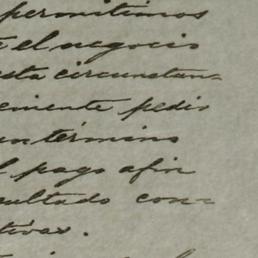 permitimos
el negocio
esta circunstan-
emente pedir
un término
l pago afin
sultado con-
tivas.